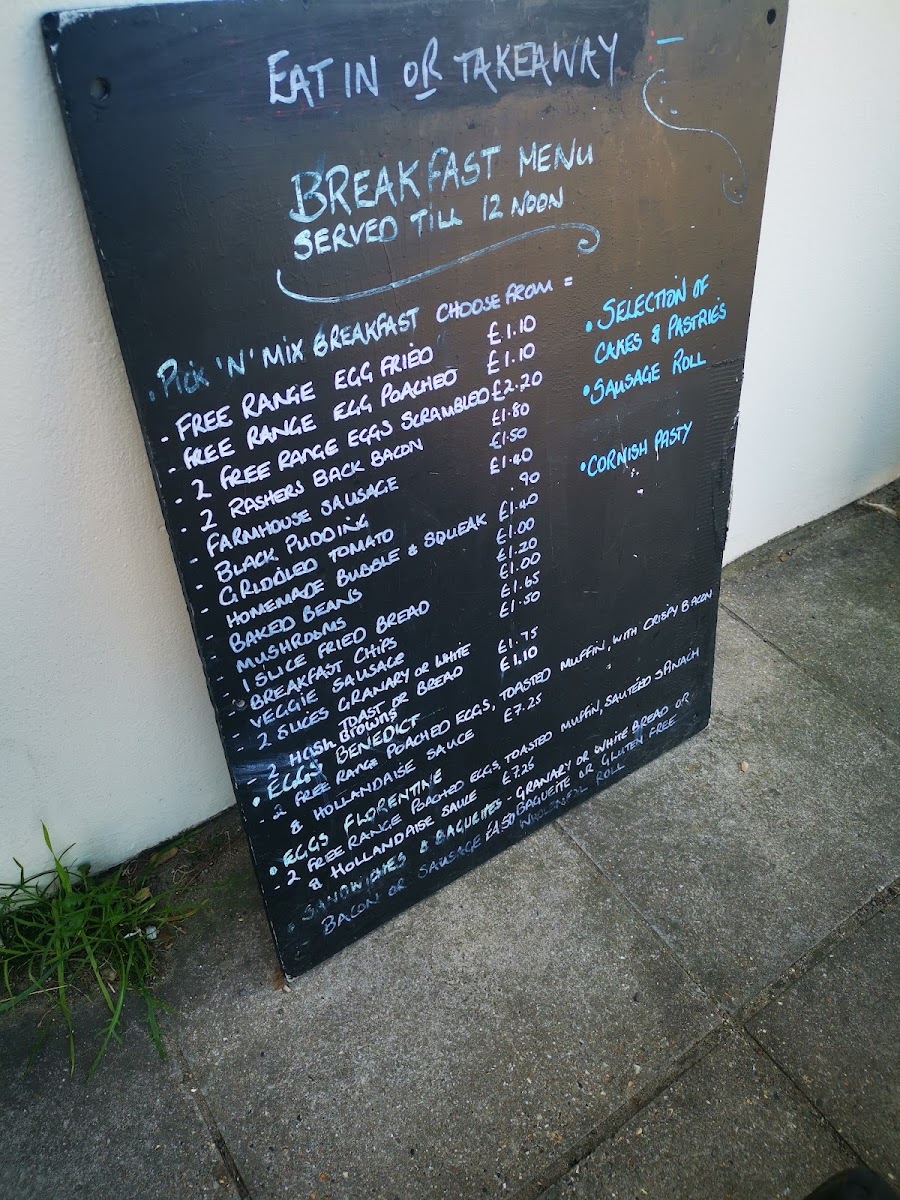 EAT IN OR TAKEAWAY -
BREAKFAST MENU
SERVED TILL 12 NOON
• PICK 'N' MIX BREAKFAST CHOOSE FROM =
- FREE RANGE EGG FRIED £1.10
- FREE RANGE EGG POACHED £1.10
- 2 FREE RANGE EGGS SCRAMBLED £2.20
- 2 RASHERS BACK BACON £1.80
- FARMHOUSE SAUSAGE £1.50
- BLACK PUDDING £1.40
- GRIDDLED TOMATO .90
- HOMEMADE BUBBLE & SQUEAK £1.40
- BAKED BEANS £1.00
- MUSHROOMS £1.20
- 1 SLICE FRIED BREAD £1.00
- BREAKFAST CHIPS £1.65
- VEGGIE SAUSAGE £1.50
- 2 SLICES GRANARY OR WHITE
TOAST OR BREAD £1.75
- 2 HASH BROWNS £1.10
• EGGS BENEDICT
- 2 FREE RANGE POACHED EGGS, TOASTED MUFFIN, WITH CRISPY BACON
& HOLLANDAISE SAUCE £7.25
• EGGS FLORENTINE
- 2 FREE RANGE POACHED EGGS, TOASTED MUFFIN, SAUTEÉD SPINACH
& HOLLANDAISE SAUCE £7.25
• SANDWICHES & BAGUETTES - GRANARY OR WHITE BREAD OR
BAGUETTE OR GLUTEN FREE
BACON OR SAUSAGE £4.50 WHOLEMEAL ROLL
• SELECTION OF
CAKES & PASTRIES
• SAUSAGE ROLL
• CORNISH PASTY